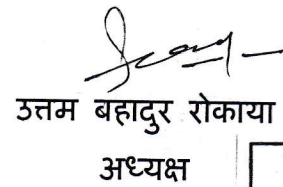 उत्तम बहादुर रोकाया
अध्यक्ष